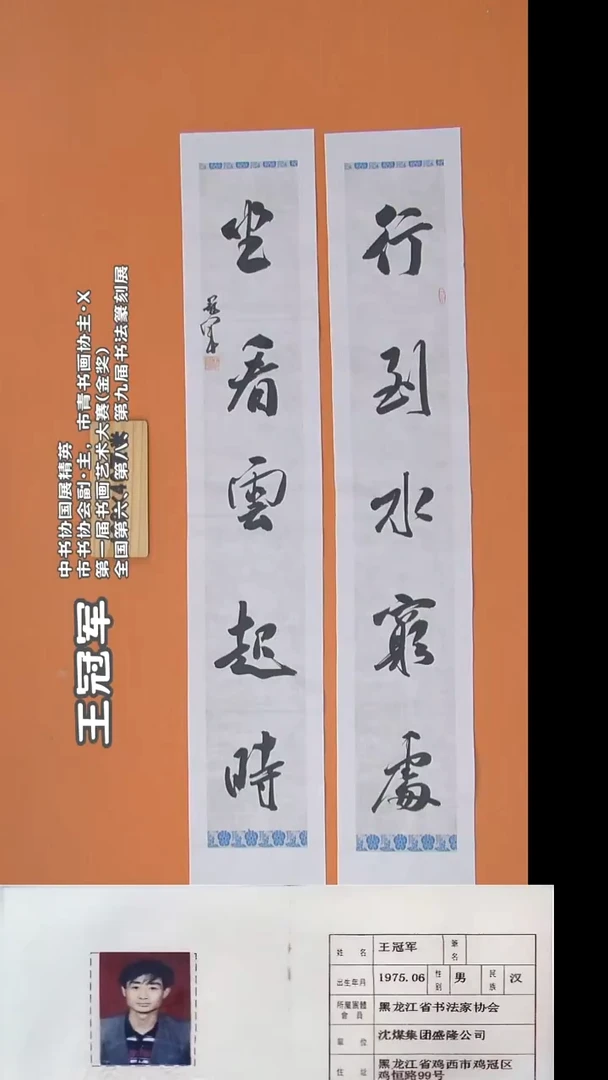 行到水窮處
坐看雲起時
冠軍
王冠军
中书协国展精英
市书协会副·主，市青书画协主·X
第一届书画艺术大赛(金奖)
全国第六 第八 第九届书法篆刻展
姓名 王冠军 筆名
出生年月 1975.06 性別 男 民族 汉
所屬團體會員 黑龙江省书法家协会
單位 沈煤集团盛隆公司
住址 黑龙江省鸡西市鸡冠区
鸡恒路99号